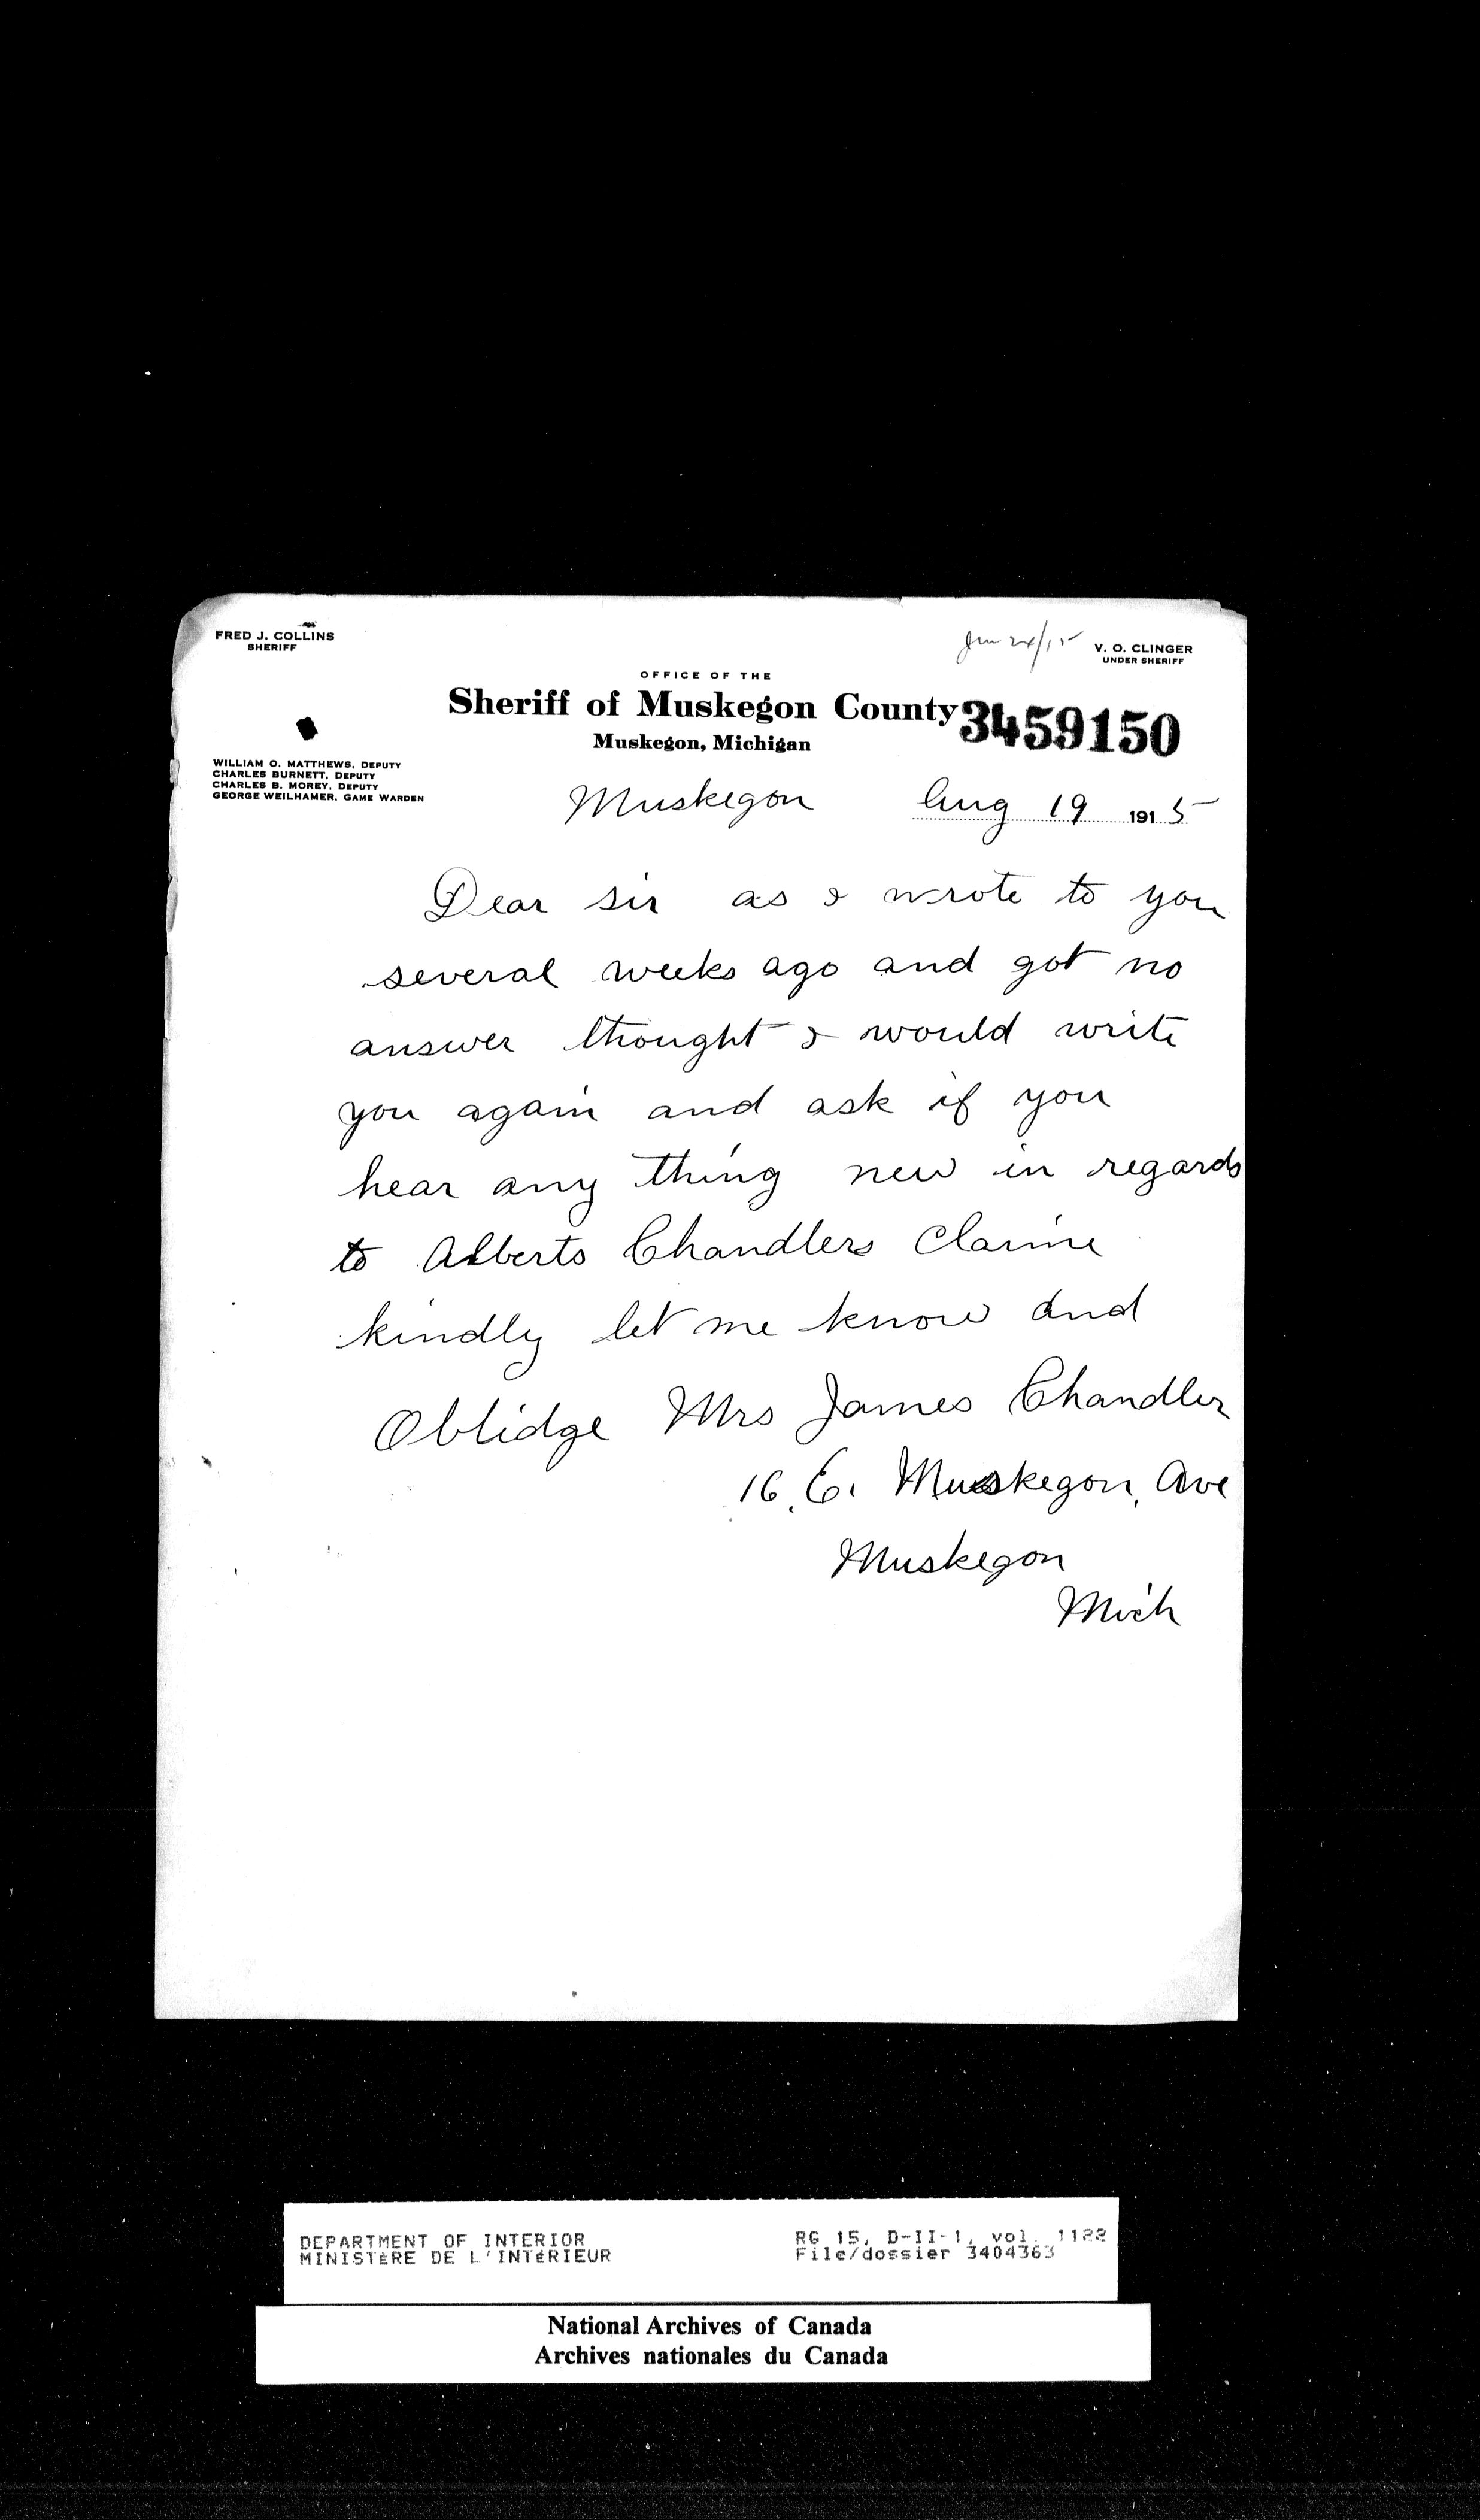 FRED J. COLLINS
SHERIFF
V. O. CLINGER
UNDER SHERIFF
OFFICE OF THE
Sheriff of Muskegon County
3459150
Muskegon, Michigan
WILLIAM O. MATTHEWS, DEPUTY
CHARLES BURNETT, DEPUTY
CHARLES B. MOREY, DEPUTY
GEORGE WEILHAMER, GAME WARDEN
Muskegon Aug 19 1915
Dear sir as I wrote to you
several weeks ago and got no
answer thought I would write
you again and ask if you
hear any thing new in regards
to Alberts Chandlers Claime
kindly let me know and
Oblidge Mrs James Chandler
16 E. Muskegon, Ave
Muskegon
Mich
DEPARTMENT OF INTERIOR
MINISTÈRE DE L'INTÉRIEUR
RG 15, D-II-1, vol. 1122
File/dossier 3404363
National Archives of Canada
Archives nationales du Canada